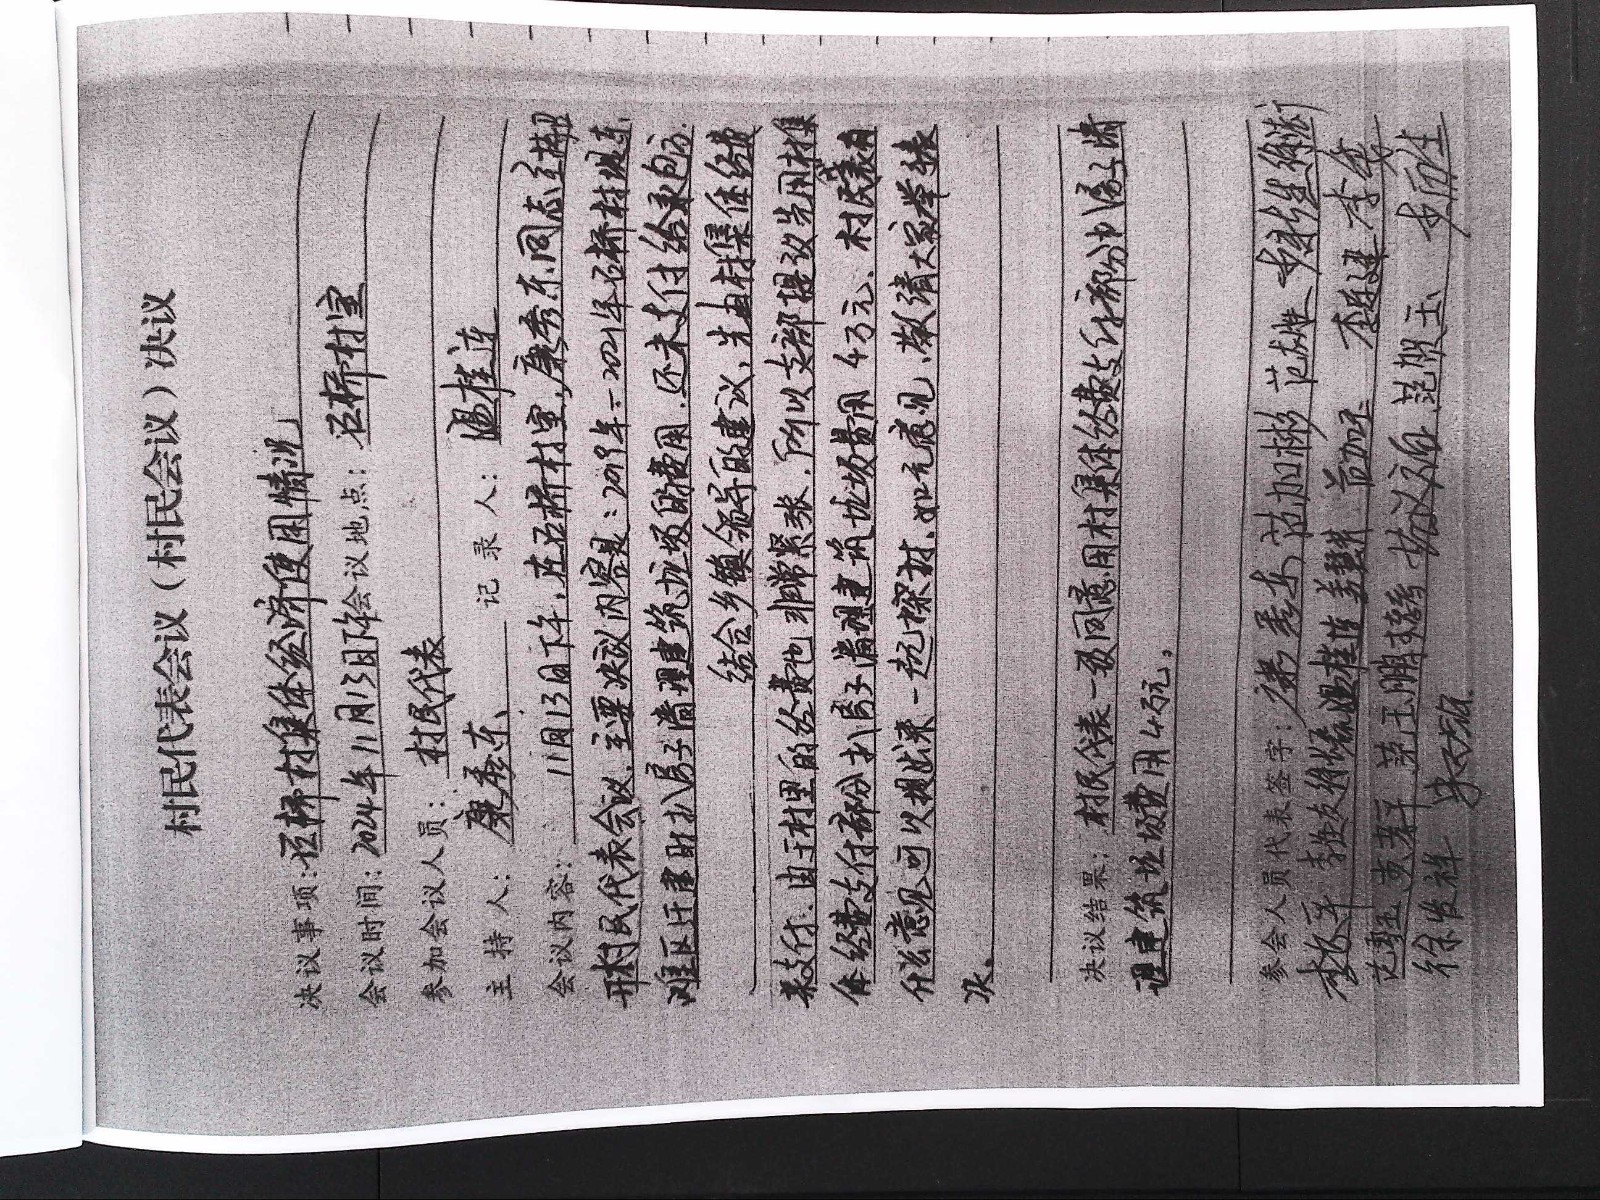 村民代表会议（村民会议）决议
决议事项：石桥村集体经济使用情况
会议时间：2024年11月13日下午会议地点：石桥村室
参加会议人员：村民代表
主持人：康秀东 记录人：温桂连
会议内容：11月13日下午，在石桥村室，康秀东同志主持召
开村民代表会议，主要决议内容是：2019年——2021年石桥村堤东
滩区迁建时扒房子清理建筑垃圾的费用，还未支付给承包方.
结合乡镇领导的建议，先由村集体经费
来支付、由于村里的经费也非常紧张，所以支部提议先用村集
体经费支付部分扒房子清理建筑垃圾费用4万元、村民代表有
什么意见可以提出来一起探讨、如无意见，敬请大家举手表
决。
决议结果：村民代表一致同意用村集体经费支付部分扒房子清
理建筑垃圾费用4万元。
参会人员代表签字：康秀东
温桂连
徐发祥